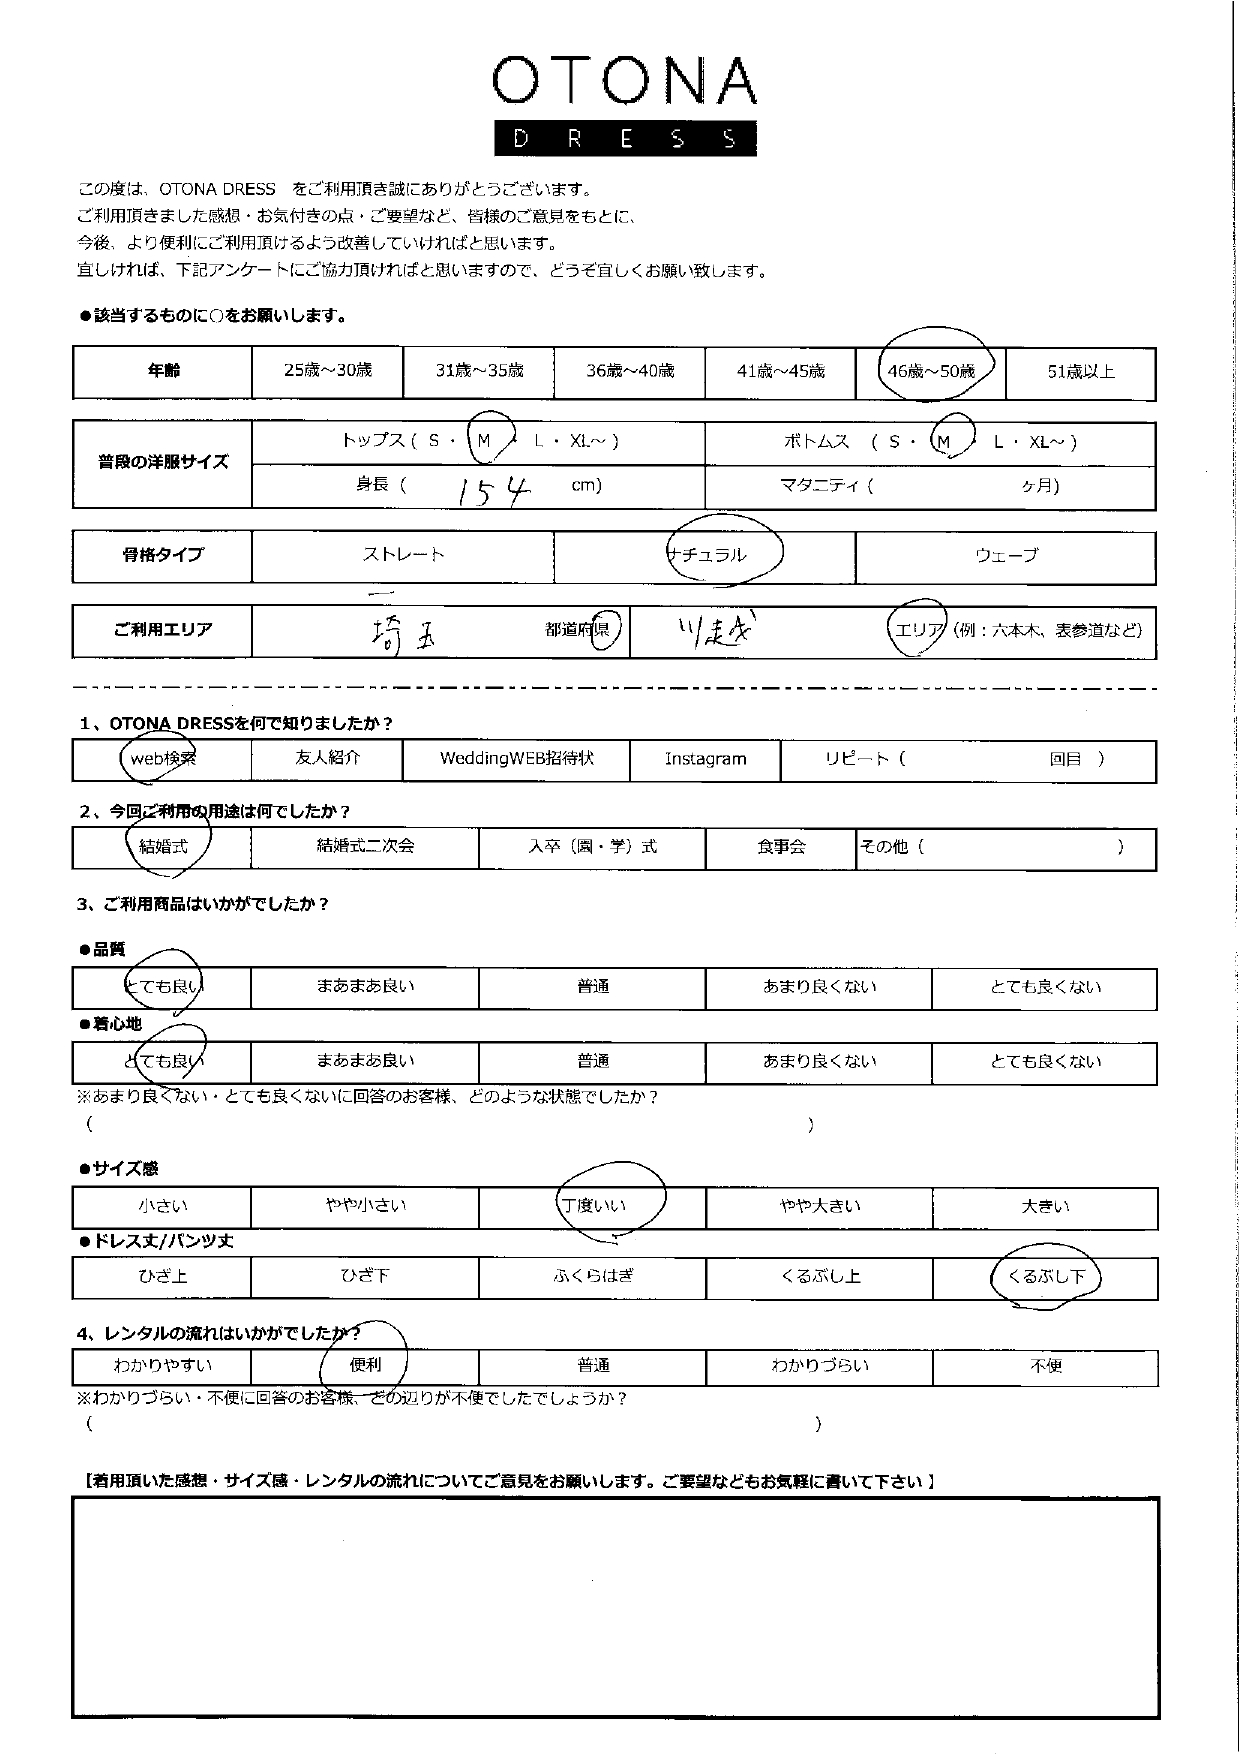 OTONA
DRESS
この度は、OTONA DRESS をご利用頂き誠にありがとうございます。
ご利用頂きました感想・お気付きの点・ご要望など、皆様のご意見をもとに、
今後、より便利にご利用頂けるよう改善していければと思います。
宜しければ、下記アンケートにご協力頂ければと思いますので、どうぞ宜しくお願い致します。
●該当するものに○をお願いします。
年齢 25歳～30歳 31歳～35歳 36歳～40歳 41歳～45歳 46歳～50歳 51歳以上
普段の洋服サイズ トップス ( S ・ M ・ L ・ XL～ ) ボトムス ( S ・ M ・ L ・ XL～ )
身長 ( 154 cm) マタニティ ( ヶ月)
骨格タイプ ストレート ナチュラル ウェーブ
ご利用エリア 埼玉 都道府県 川越 エリア (例：六本木、表参道など)
1、OTONA DRESSを何で知りましたか？
web検索 友人紹介 WeddingWEB招待状 Instagram リピート ( 回目 )
2、今回ご利用の用途は何でしたか？
結婚式 結婚式二次会 入卒（園・学）式 食事会 その他 ( )
3、ご利用商品はいかがでしたか？
●品質
とても良い まあまあ良い 普通 あまり良くない とても良くない
●着心地
とても良い まあまあ良い 普通 あまり良くない とても良くない
※あまり良くない・とても良くないに回答のお客様、どのような状態でしたか？
( )
●サイズ感
小さい やや小さい 丁度いい やや大きい 大きい
●ドレス丈/パンツ丈
ひざ上 ひざ下 ふくらはぎ くるぶし上 くるぶし下
4、レンタルの流れはいかがでしたか？
わかりやすい 便利 普通 わかりづらい 不便
※わかりづらい・不便に回答のお客様、どの辺りが不便でしたでしょうか？
( )
【着用頂いた感想・サイズ感・レンタルの流れについてご意見をお願いします。ご要望などもお気軽に書いて下さい】